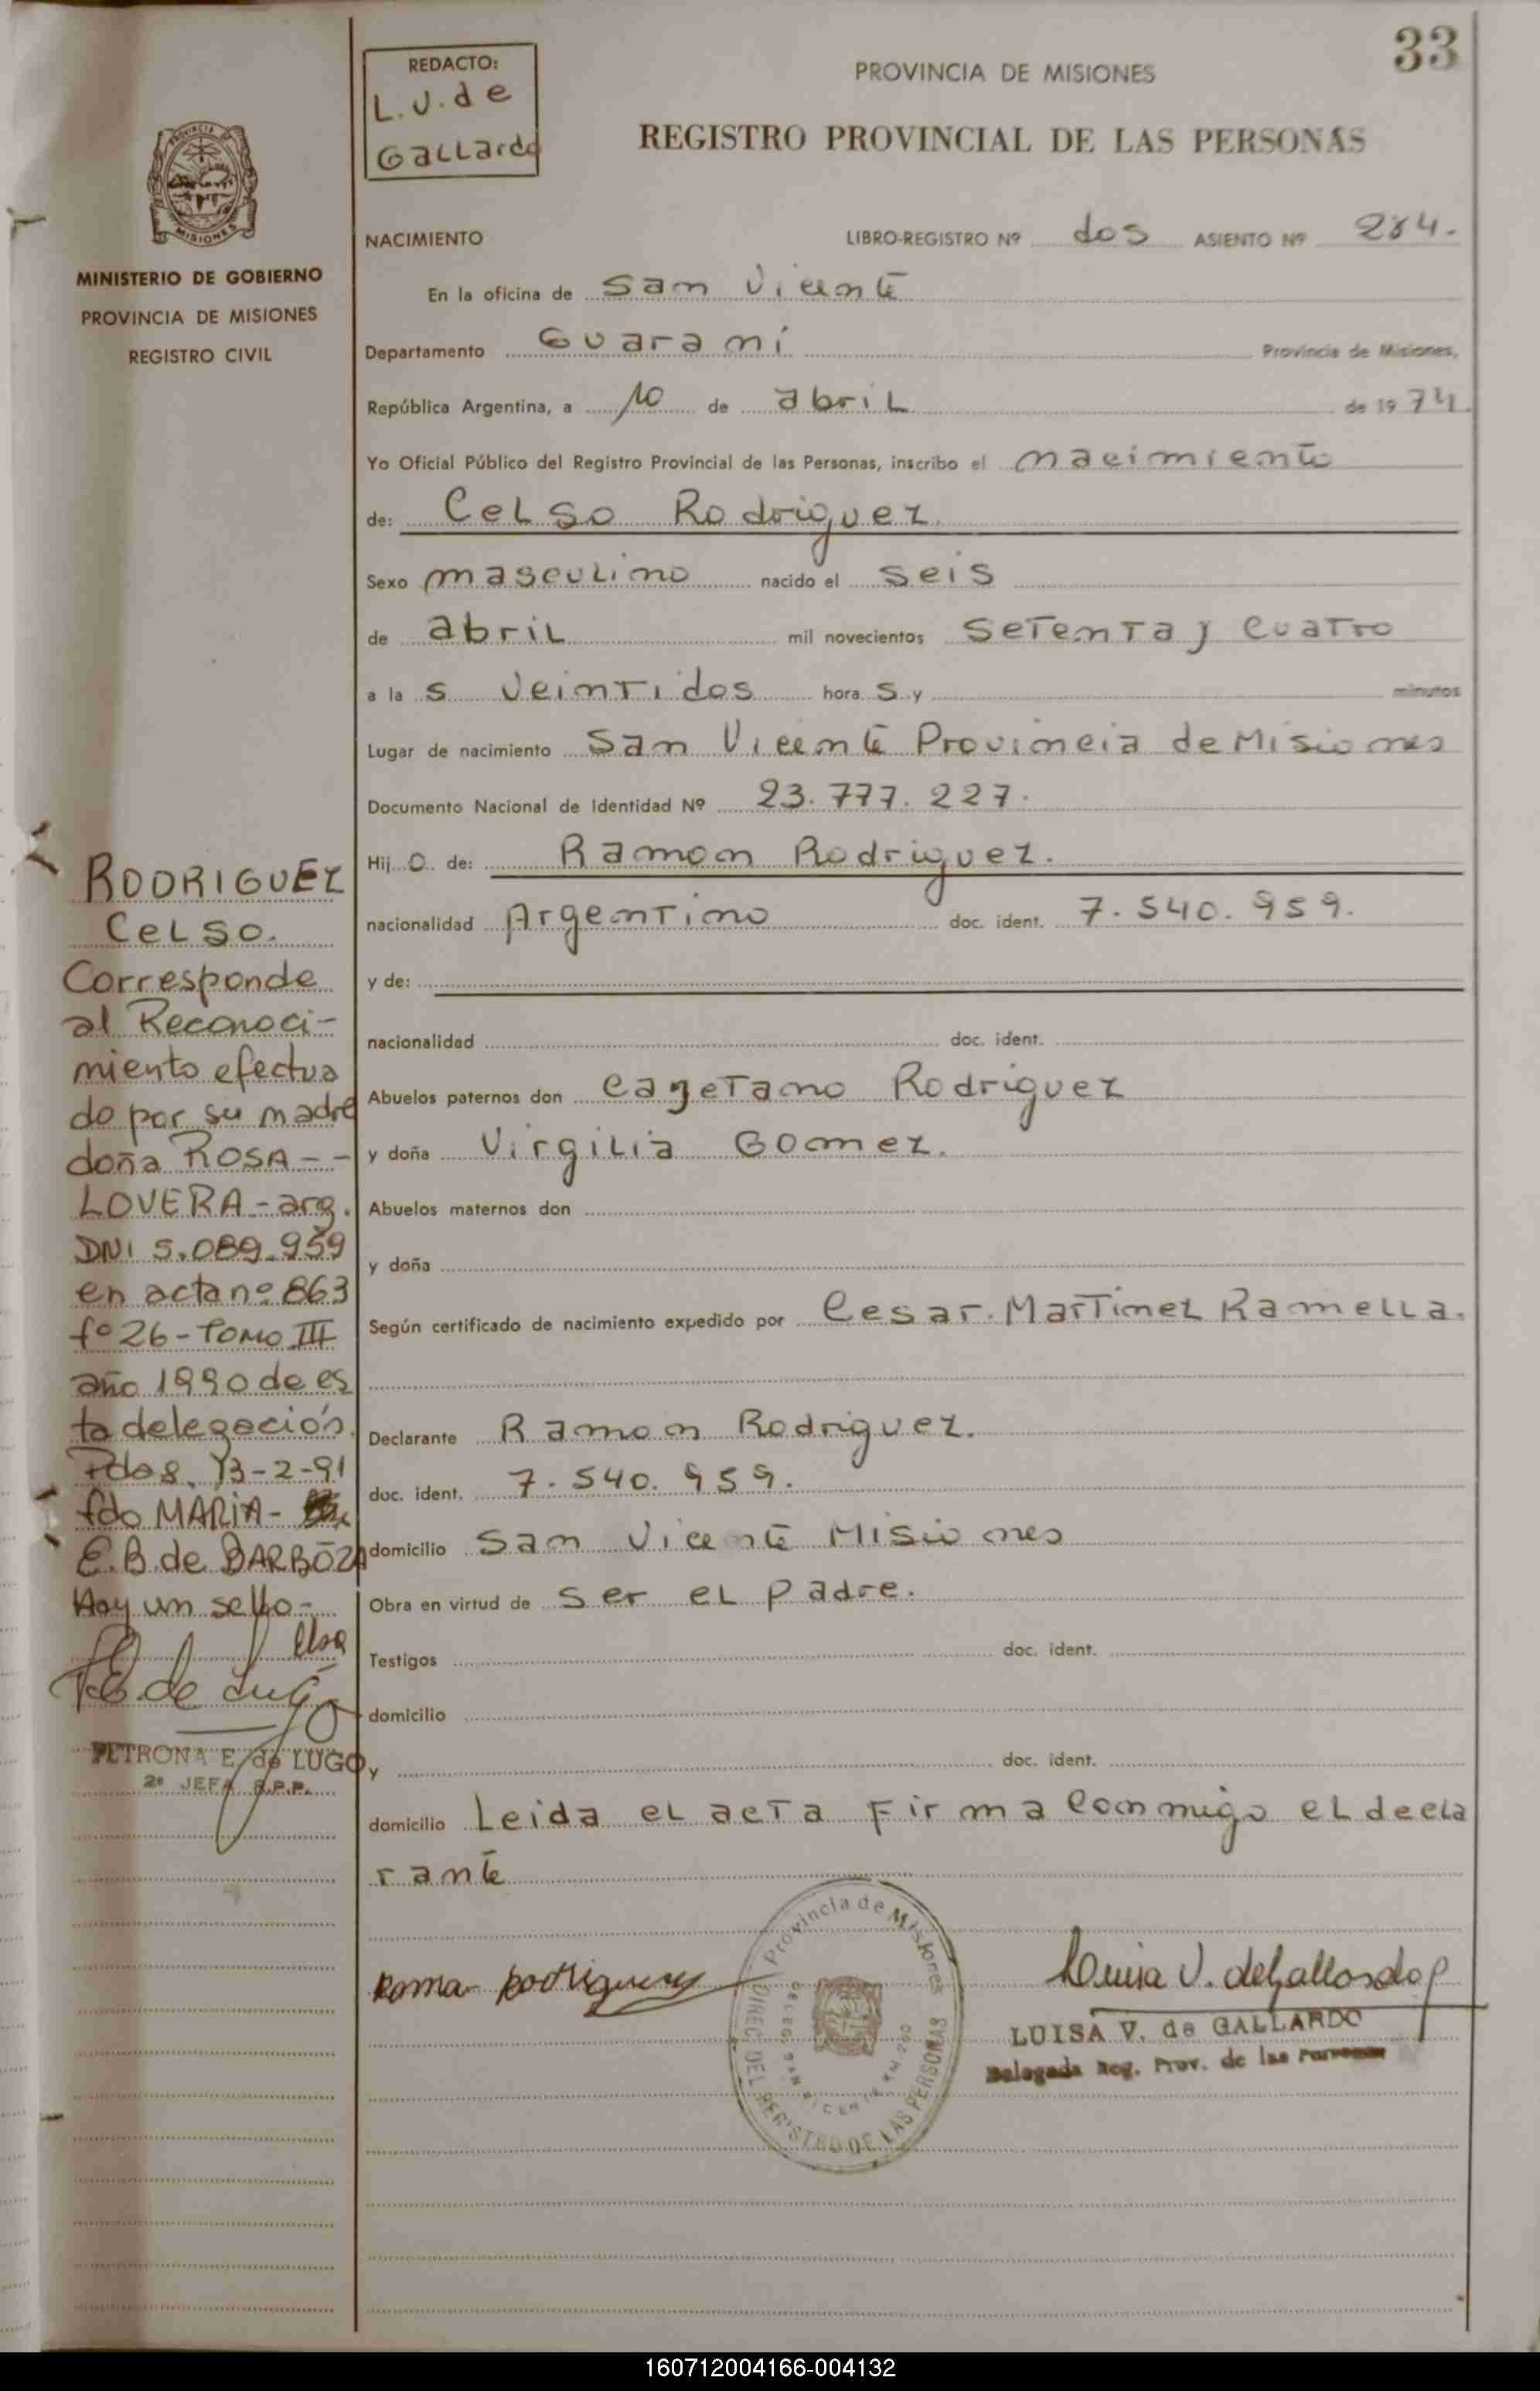 33
REDACTO:
L.V. de
Gallardo
PROVINCIA DE MISIONES
REGISTRO PROVINCIAL DE LAS PERSONAS
PROVINCIA DE
MISIONES
MINISTERIO DE GOBIERNO
PROVINCIA DE MISIONES
REGISTRO CIVIL
NACIMIENTO LIBRO-REGISTRO Nº dos ASIENTO Nº 284.
En la oficina de San Vicente
Departamento Guarani Provincia de Misiones,
República Argentina, a 10 de abril de 1974.
Yo Oficial Público del Registro Provincial de las Personas, inscribo el nacimiento
de: Celso Rodriguez.
Sexo masculino nacido el seis
de abril mil novecientos setenta y cuatro
a las veintidos horas y minutos
Lugar de nacimiento San Vicente Provincia de Misiones
Documento Nacional de Identidad Nº 23.777.227.
Hijo de: Ramon Rodriguez.
nacionalidad Argentino doc. ident. 7.540.959.
y de:
nacionalidad doc. ident.
Abuelos paternos don Cayetano Rodriguez
y doña Virgilia Gomez.
Abuelos maternos don
y doña
Según certificado de nacimiento expedido por Cesar. Martinez Ramella.
Declarante Ramon Rodriguez.
doc. ident. 7.540.959.
domicilio San Vicente Misiones
Obra en virtud de ser el padre.
Testigos doc. ident.
domicilio
y doc. ident.
domicilio Leida el acta firma conmigo el decla
rante
RODRIGUEZ
CELSO.
Corresponde
al Reconoci-
miento efectua
do por su madre
doña ROSA - -
LOVERA - arg.
DNI 5.089.959
en acta nº 863
fº 26 - TOMO III
año 1990 de es
ta delegación.
Pdas. 13-2-91
fdo MARIA -
E.B. de BARBOZA
Hay un sello -
Elsa
de Lugo
PETRONA E. de LUGO
2º JEFA R.P.P.
Roman Rodriguez
Provincia de Misiones
DIREC. DEL REGISTRO DE LAS PERSONAS
DELEG. SAN VICENTE KM. 200
Luisa V. de Gallardo
LUISA V. de GALLARDO
Delegada Reg. Prov. de las Personas
160712004166-004132